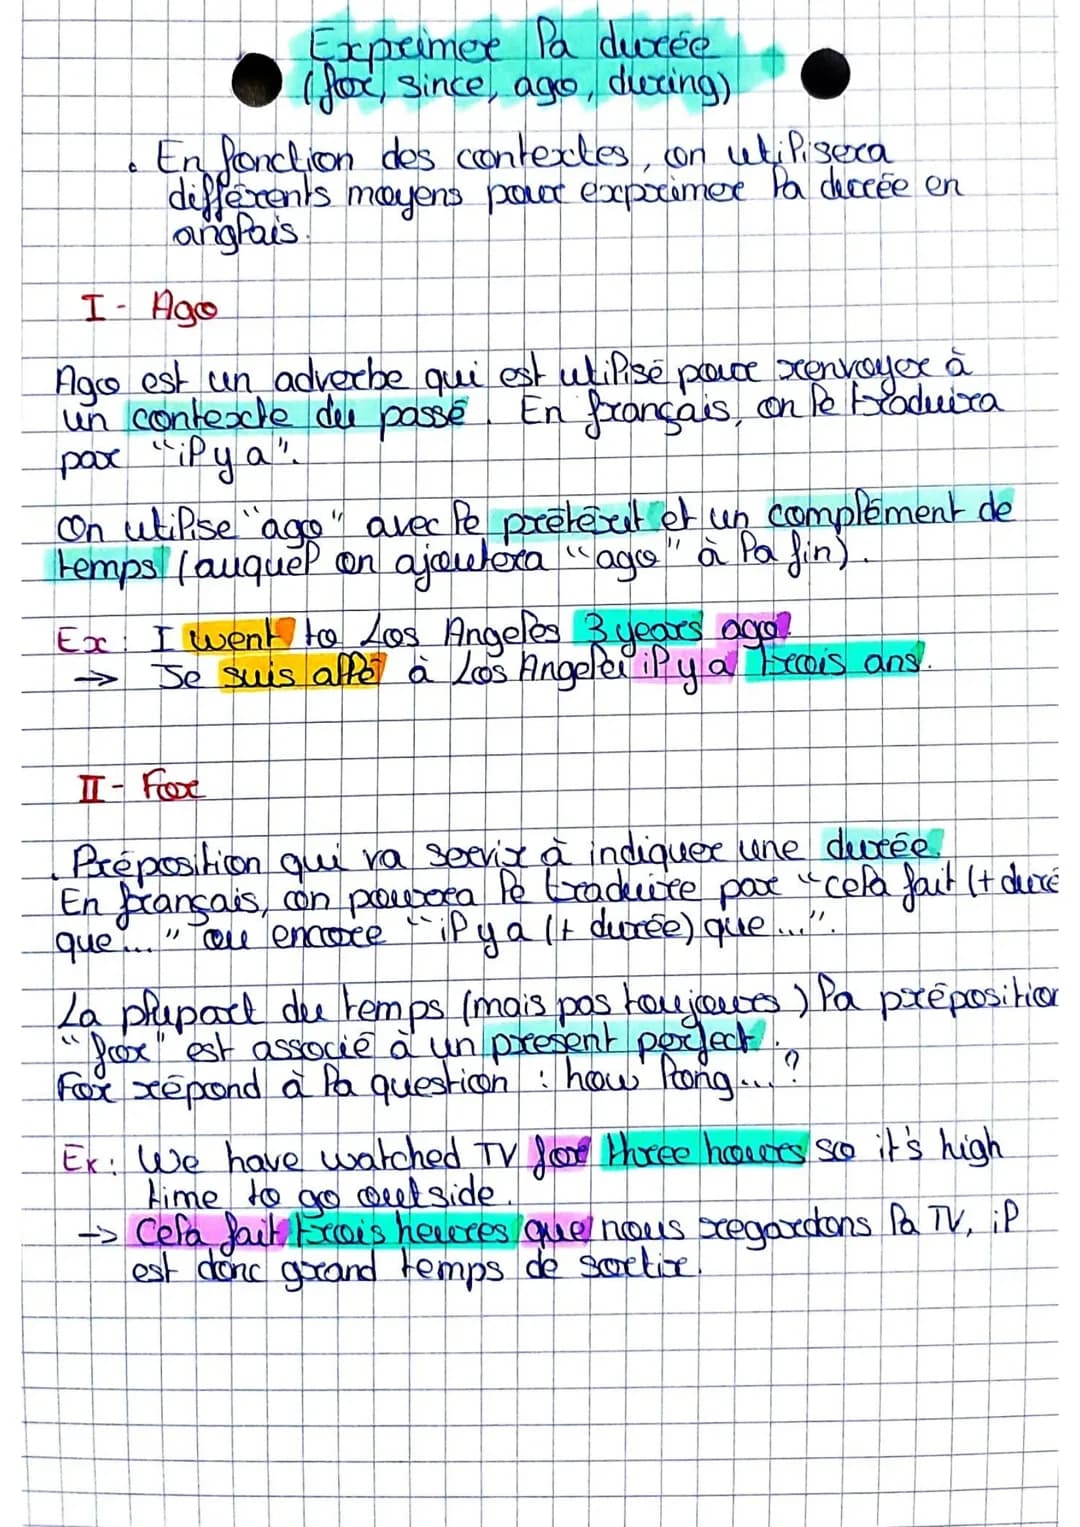 Exprimer la durée
(for, since, ago, during)
• En fonction des contextes, on utilisera
différents moyens pour exprimer la durée en
anglais.
I - Ago
Ago est un adverbe qui est utilisé pour renvoyer à
un contexte du passé. En français, on le traduira
par "il y a".
On utilise "ago" avec le prétérit et un complément de
temps (auquel on ajoutera "ago" à la fin).
Ex : I went to Los Angeles 3 years ago.
→ Je suis allé à Los Angeles il y a trois ans.
II - For
. Préposition qui va servir à indiquer une durée.
En français, on pourra le traduire par "cela fait (+ duré
que..." ou encore "il y a (+ durée) que...".
La plupart du temps (mais pas toujours) la préposition
"for" est associé à un present perfect.
For répond à la question : how long...?
Ex : We have watched TV for three hours so it's high
time to go outside.
-> Cela fait trois heures que nous regardons la TV, il
est donc grand temps de sortir.